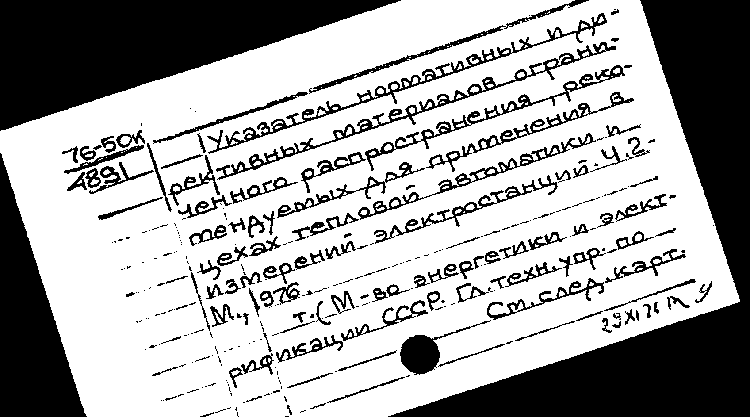 76-50к
4891
Указатель нормативных и ди-
рективных материалов ограни-
ченного распространения, реко-
мендуемых для применения в
цехах тепловой автоматики и
измерений электростанций. Ч.2-
М., 1976.
т. (М-во энергетики и элект-
рификации СССР. Гл. техн. упр. по
См. след. карт.